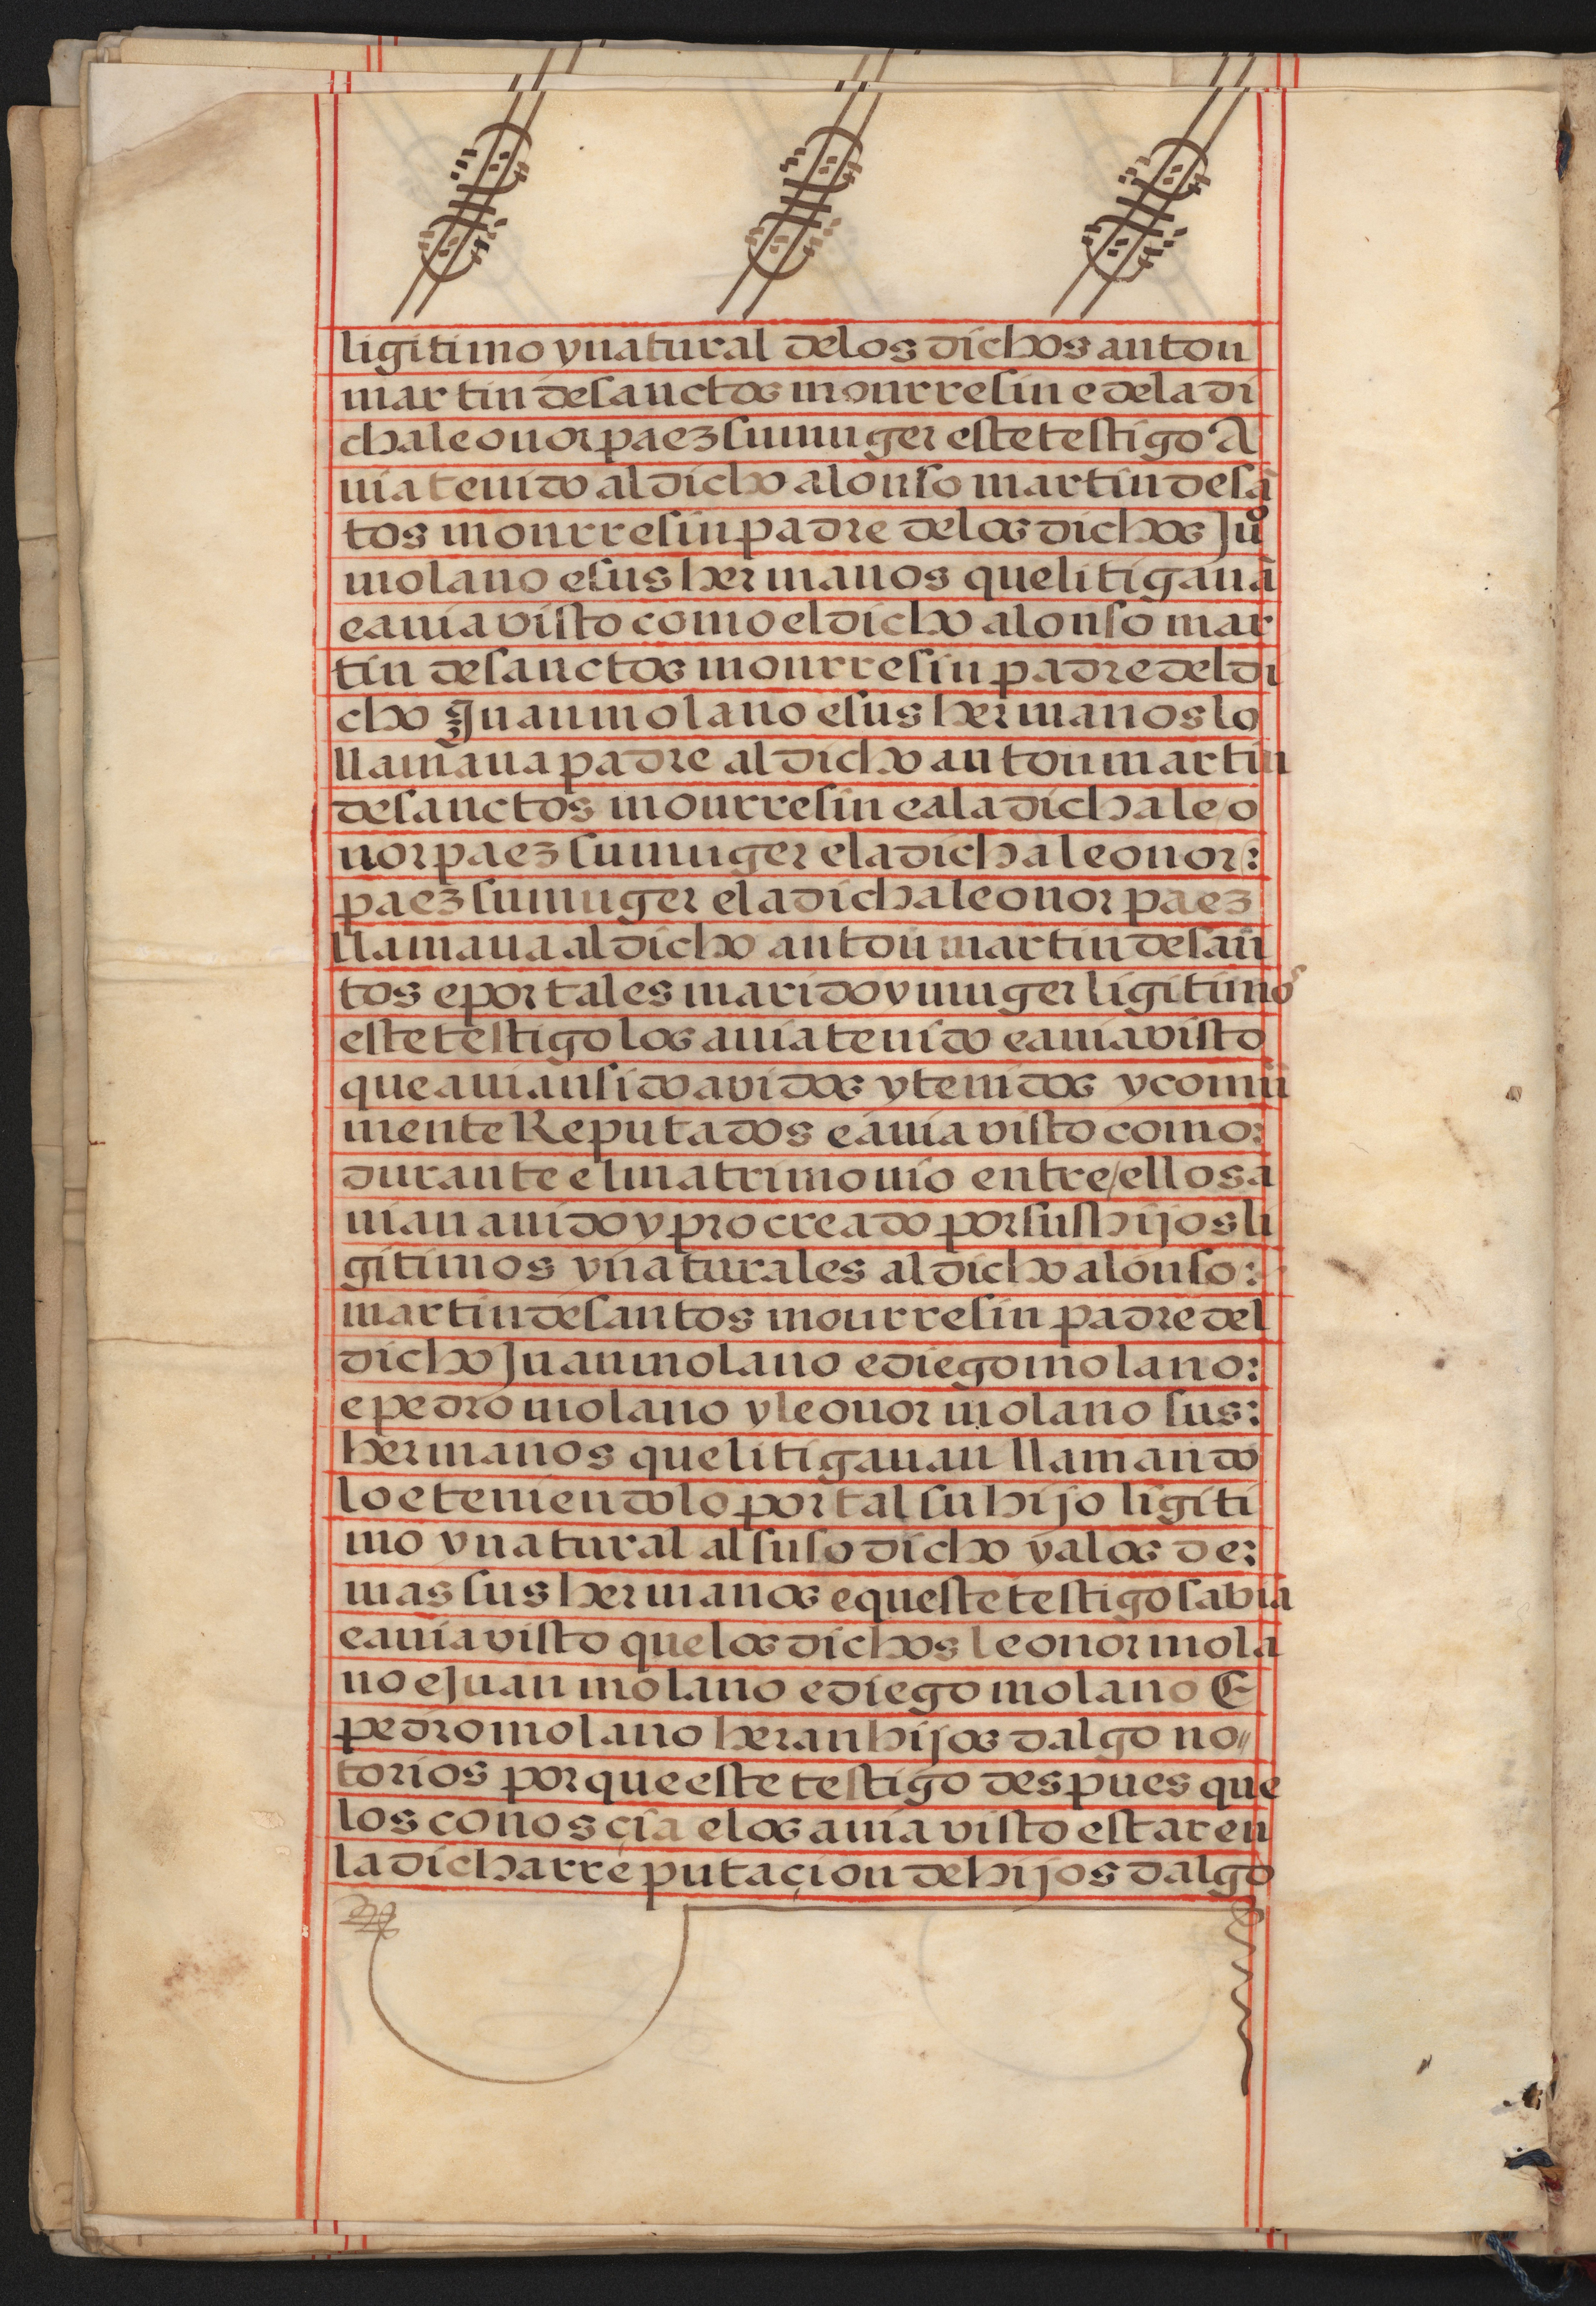 ligitimo y natural de los dichos anton
martin de sanctos mourresin e dela di
cha leonor paez su muger este testigo A
uia tenido al dicho alonso martin de sã
tos mourresin padre delos dichos Juº
molano e sus hermanos que litigauã
e auia visto como el dicho alonso mar
tin de sanctos mourresin padre del di
cho Juan molano e sus hermanos lo
llamaua padre al dicho anton martin
de sanctos mourresin e a la dicha leo
nor paez su muger e la dicha leonor:
paez su muger e la dicha leonor paez
llamaua al dicho anton martin de san
tos e por tales marido y muger ligitimos
este testigo los auia tenido e auia visto
que auian sido avidos y tenidos y comũ
mente Reputados e auia visto como:
durante el matrimonio entre/ellos a
uian auido y procreado por sus hijos li
gitimos y naturales al dicho alonso:
martin de santos mourresin padre del
dicho Juan molano e diego molano:
e pedro molano y leonor molano sus:
hermanos que litigauan llamando
lo e teniendolo por tal su hijo ligiti
mo y natural al suso dicho y a los de:
mas sus hermanos e queste testigo sabia
e auia visto que los dichos leonor mola
no e Juan molano e diego molano E
pedro molano heran hijos dalgo no//
torios por que este testigo despues que
los conosçia e los auia visto estar en
la dicha rreputaçion de hijos dalgo